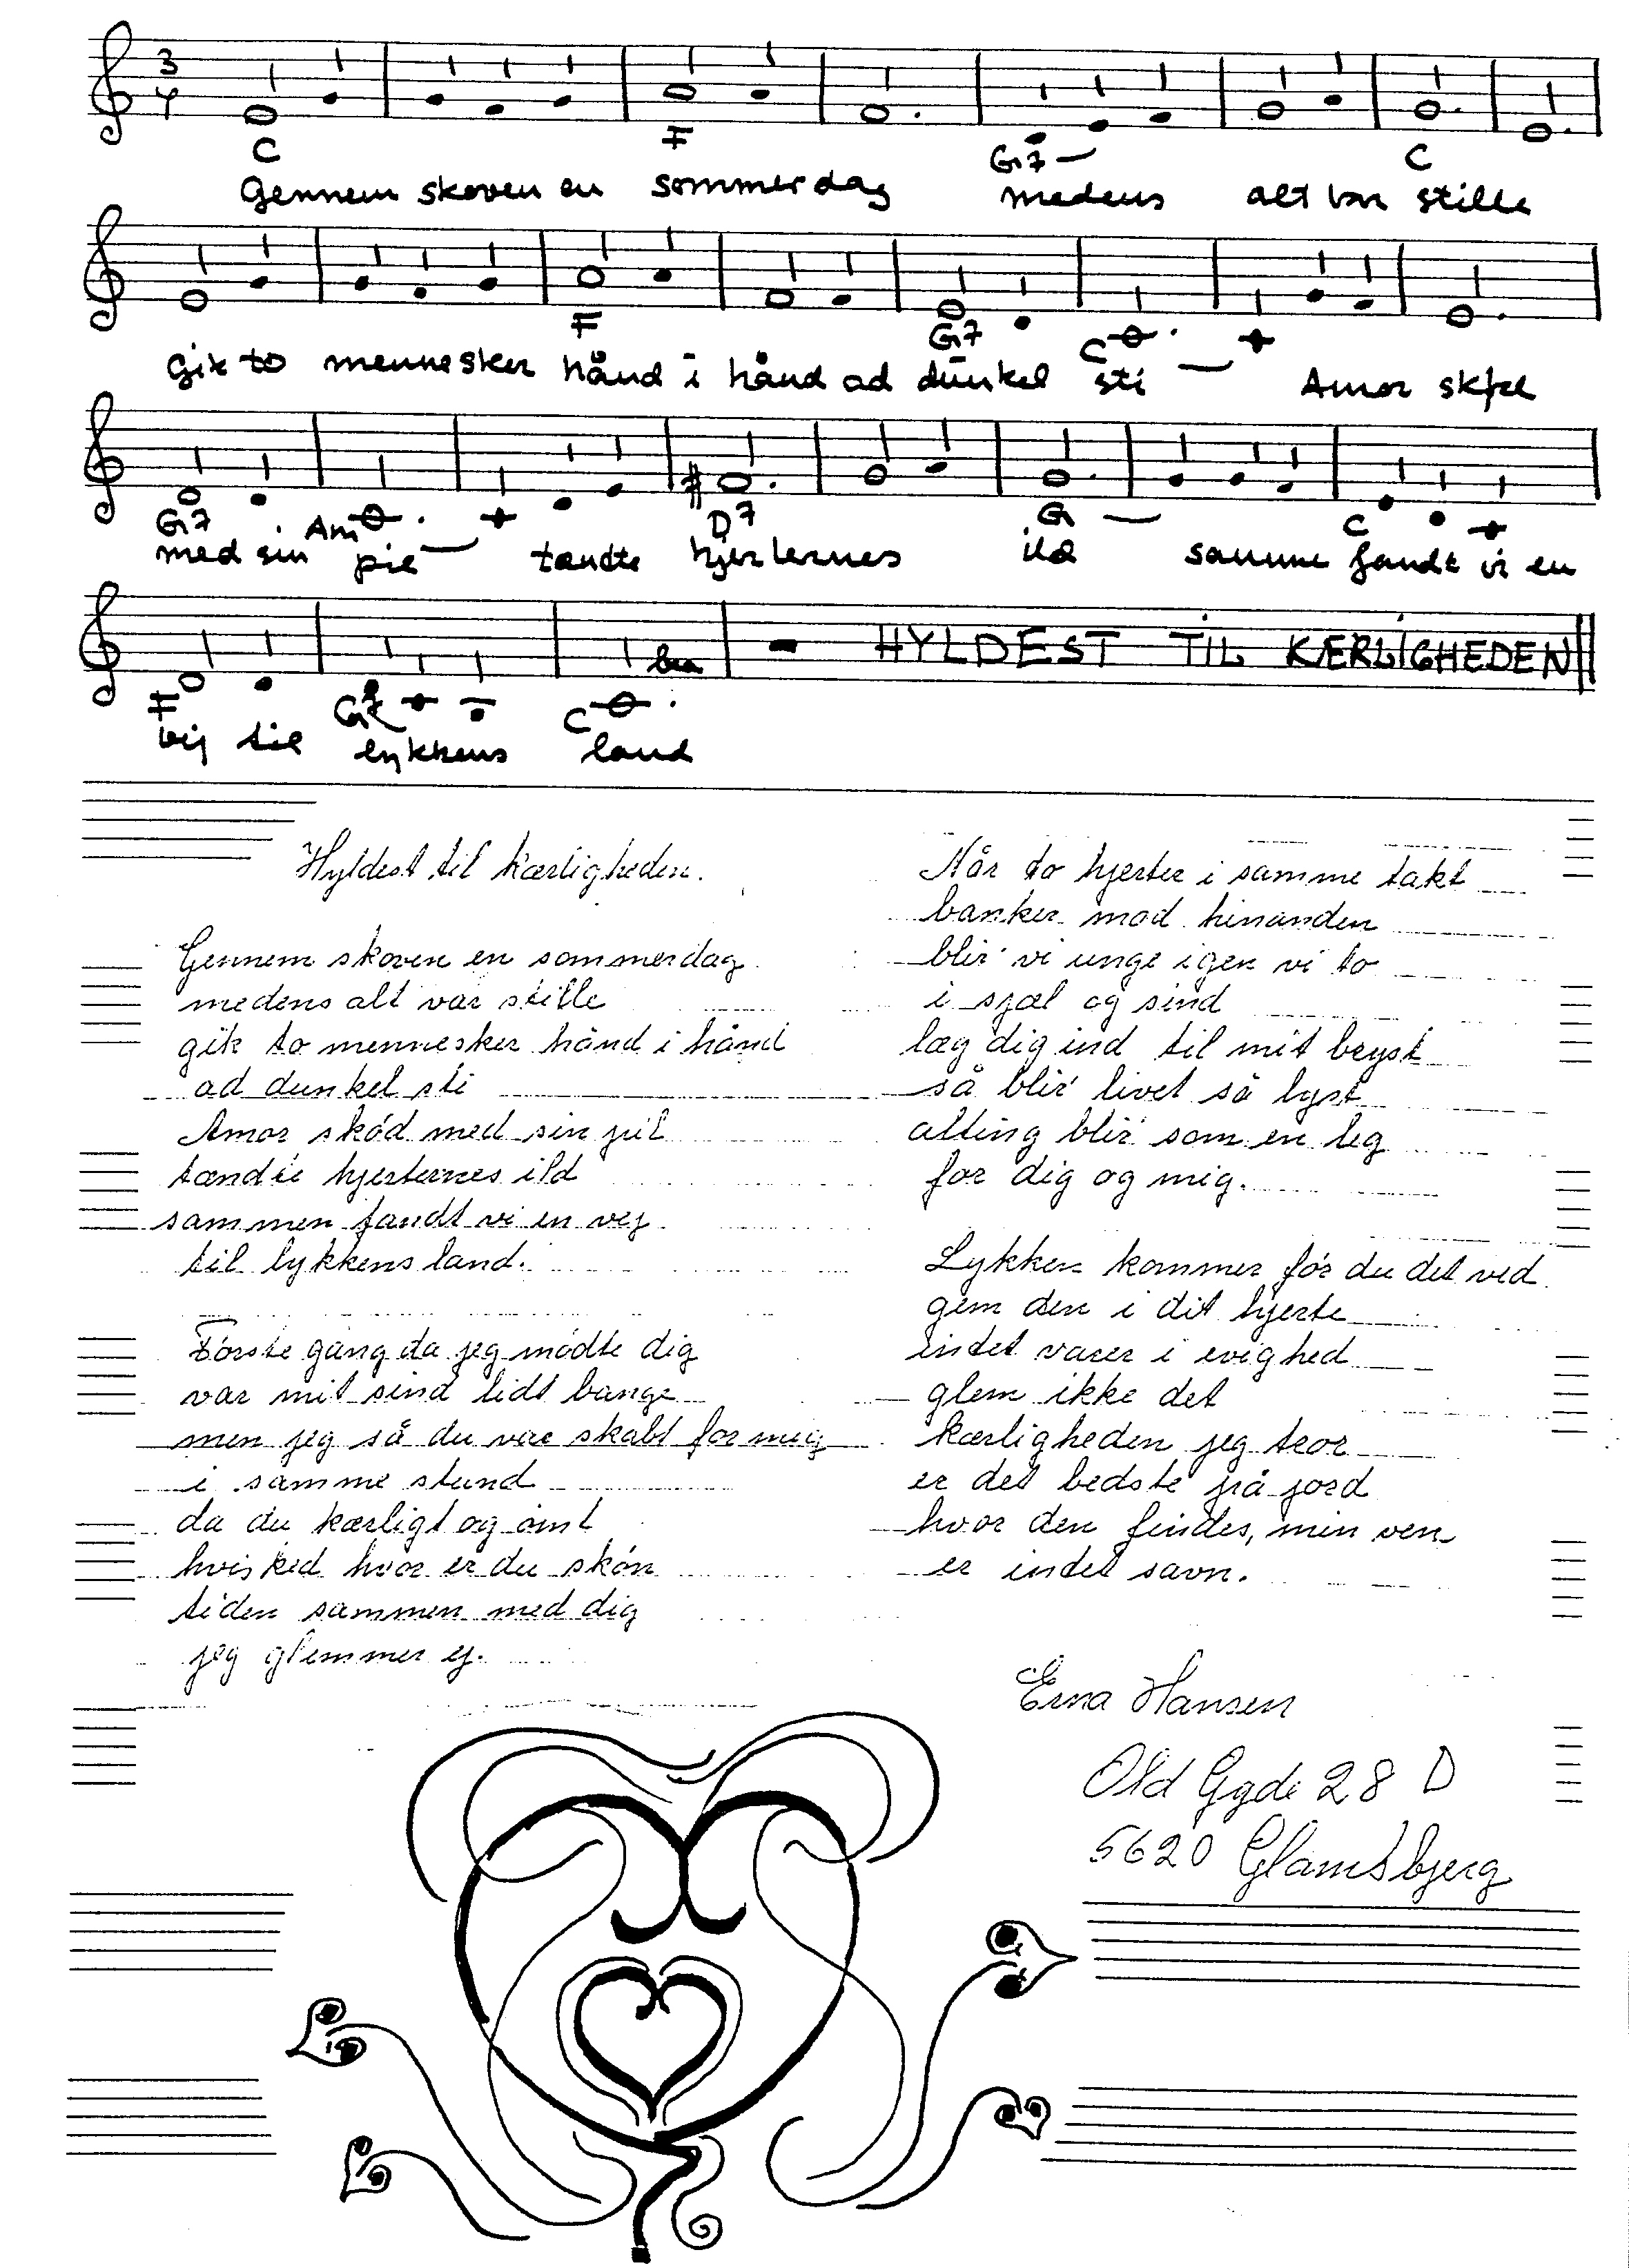 3
4
C F G7 C
Gennem skoven en sommerdag medens alt var stille
F G7 C
Gik to mennesker hånd i hånd ad dunkel sti Amor skød
G7 Am D7 G C
med sin pil tændte hjerternes ild samme fandt vi en
HYLDEST TIL KÆRLIGHEDEN
F G7 C
vej til lykkens land
Hyldest til kærligheden.
Gennem skoven en sommerdag
medens alt var stille
gik to mennesker hånd i hånd
ad dunkel sti
Amor skód med sin pil
tændte hjerternes ild
sammen fandt vi en vej
til lykkens land.
Förste gang da jeg mödte dig
var mit sind lidt bange
men jeg så du var skabt for mig
i samme stund
da du kærligt og ömt
hvisked hvor er du skön
tiden sammen med dig
jeg glemmer ej.
Når to hjerter i samme takt
banker mod hinanden
blir' vi unge igen vi to
i sjæl og sind
læg dig ind til mit bryst
så blir' livet så lyst
alting blir' som en leg
for dig og mig.
Lykken kommer för du det ved
gem den i dit hjerte
intet varer i evighed
glem ikke det
kærligheden jeg tror
er det bedste på jord
hvor den findes, min ven
er intet savn.
Erna Hansen
Old Gyde 28 D
5620 Glamsbjerg